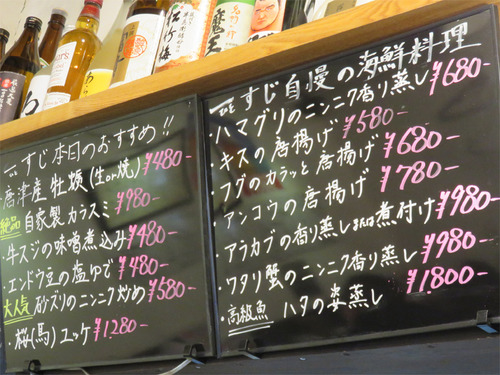 すじ本日のおすすめ!!
・唐津産 牡蠣(生or焼) ¥480-
絶品 自家製カラスミ ¥980-
・牛スジの味噌煮込み ¥480-
・エンドウ豆の塩ゆで ¥480-
大人気 砂ズリのニンニク炒め ¥580-
・桜(馬)ユッケ ¥1,280-
すじ自慢の海鮮料理
・ハマグリのニンニク香り蒸し ¥680-
・キスの唐揚げ ¥580-
・フグのカラッと唐揚げ ¥680-
・アンコウの唐揚げ ¥780-
・アラカブの香り蒸しまたは煮付け ¥980-
・ワタリ蟹のニンニク香り蒸し ¥980-
・高級魚 ハタの姿蒸し ¥1,800-